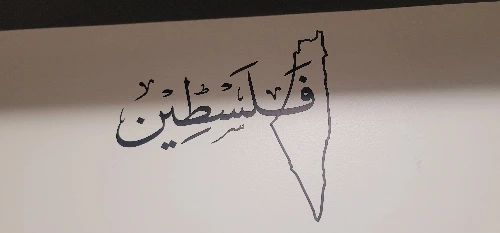 فَلَسْطِيْن